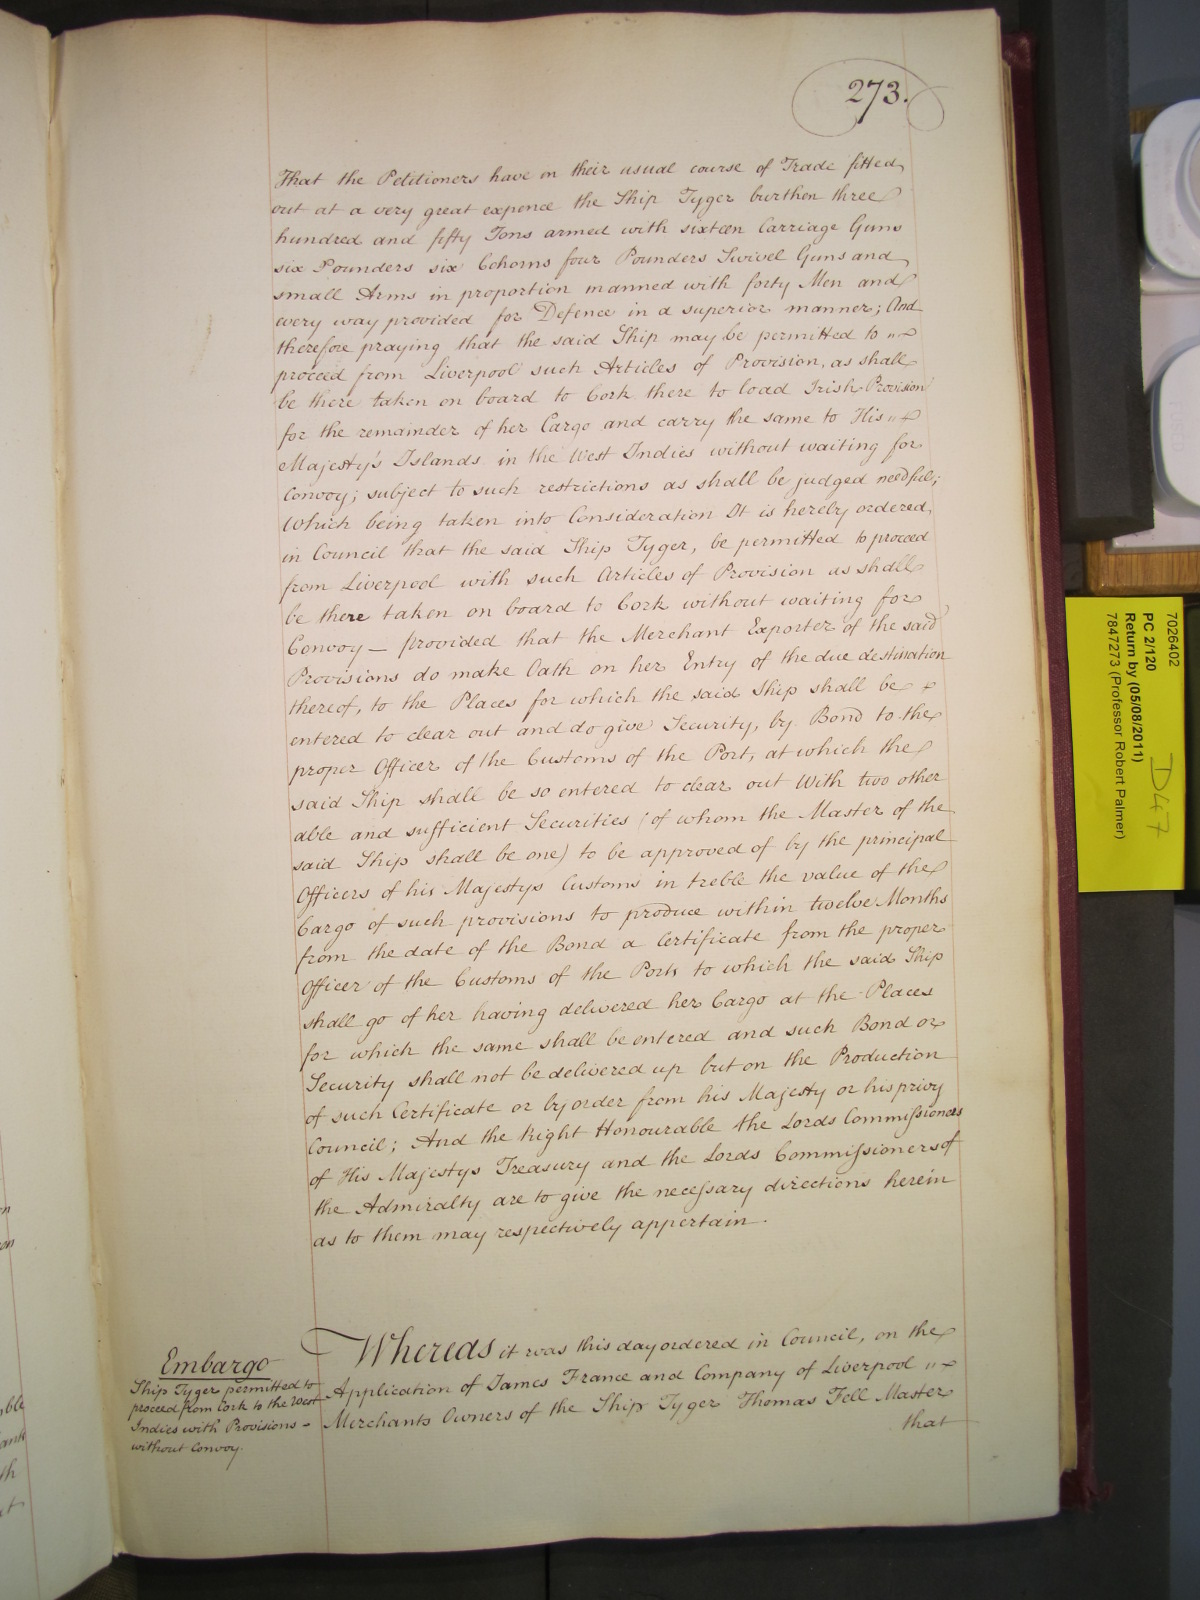 273.
That the Petitioners have in their usual course of Trade fitted
out at a very great expence the Ship Tyger burthen three
hundred and fifty Tons armed with sixteen Carriage Guns
six Pounders six Cohorns four Pounders Swivel Guns and
small Arms in proportion manned with forty Men and
every way provided for Defence in a superior manner; And
therefore praying that the said Ship may be permitted to
proceed from Liverpool such Articles of Provision, as shall
be there taken on board to Cork there to load Irish Provision
for the remainder of her Cargo and carry the same to His
Majesty's Islands in the West Indies without waiting for
Convoy; subject to such restrictions as shall be judged needful;
Which being taken into Consideration It is hereby ordered,
in Council that the said Ship Tyger, be permitted to proceed
from Liverpool with such Articles of Provision as shall
be there taken on board to Cork without waiting for
Convoy — provided that the Merchant Exporter of the said
Provisions do make Oath on her Entry of the due destination
thereof, to the Places for which the said Ship shall be
entered to clear out and do give Security, by Bond to the
proper Officer of the Customs of the Port, at which the
said Ship shall be so entered to clear out With two other
able and sufficient Securities (of whom the Master of the
said Ship shall be one) to be approved of by the principal
Officers of his Majestys Customs in treble the value of the
Cargo of such provisions to produce within twelve Months
from the date of the Bond a Certificate from the proper
Officer of the Customs of the Ports to which the said Ship
shall go of her having delivered her Cargo at the Places
for which the same shall be entered and such Bond or
Security shall not be delivered up but on the Production
of such Certificate or by order from his Majesty or his privy
Council; And the Right Honourable the Lords Commissioners
of His Majestys Treasury and the Lords Commissioners of
the Admiralty are to give the necessary directions herein
as to them may respectively appertain.
Embargo
Ship Tyger permitted to
proceed from Cork to the West
Indies with Provisions -
without Convoy.
Whereas it was this day ordered in Council, on the
Application of James France and Company of Liverpool
Merchants Owners of the Ship Tyger Thomas Fell Master
that
7026402
PC 2/120
Return by (05/08/2011)
7847273 (Professor Robert Palmer)
D47